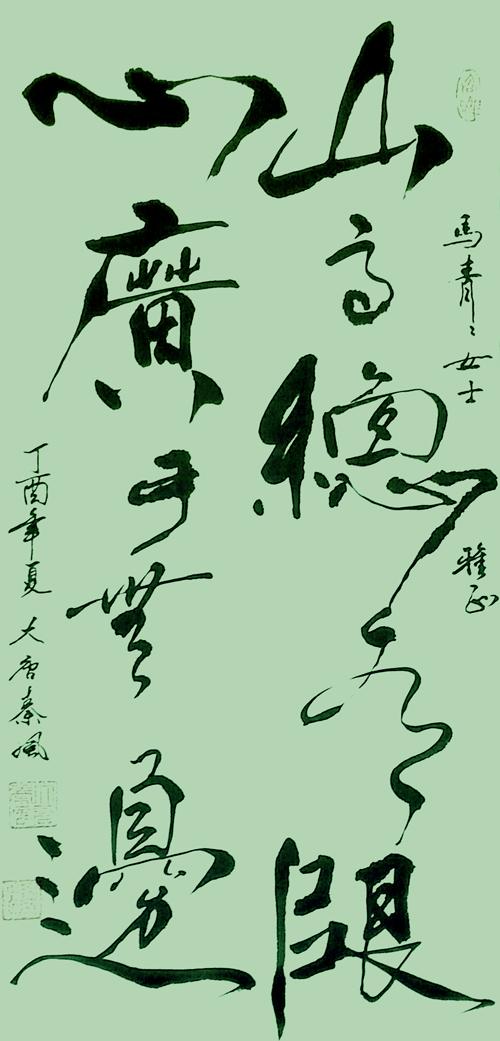 馬青〻女士 雅正
山高總有限
心廣可無邊
丁酉年夏 大唐秦風